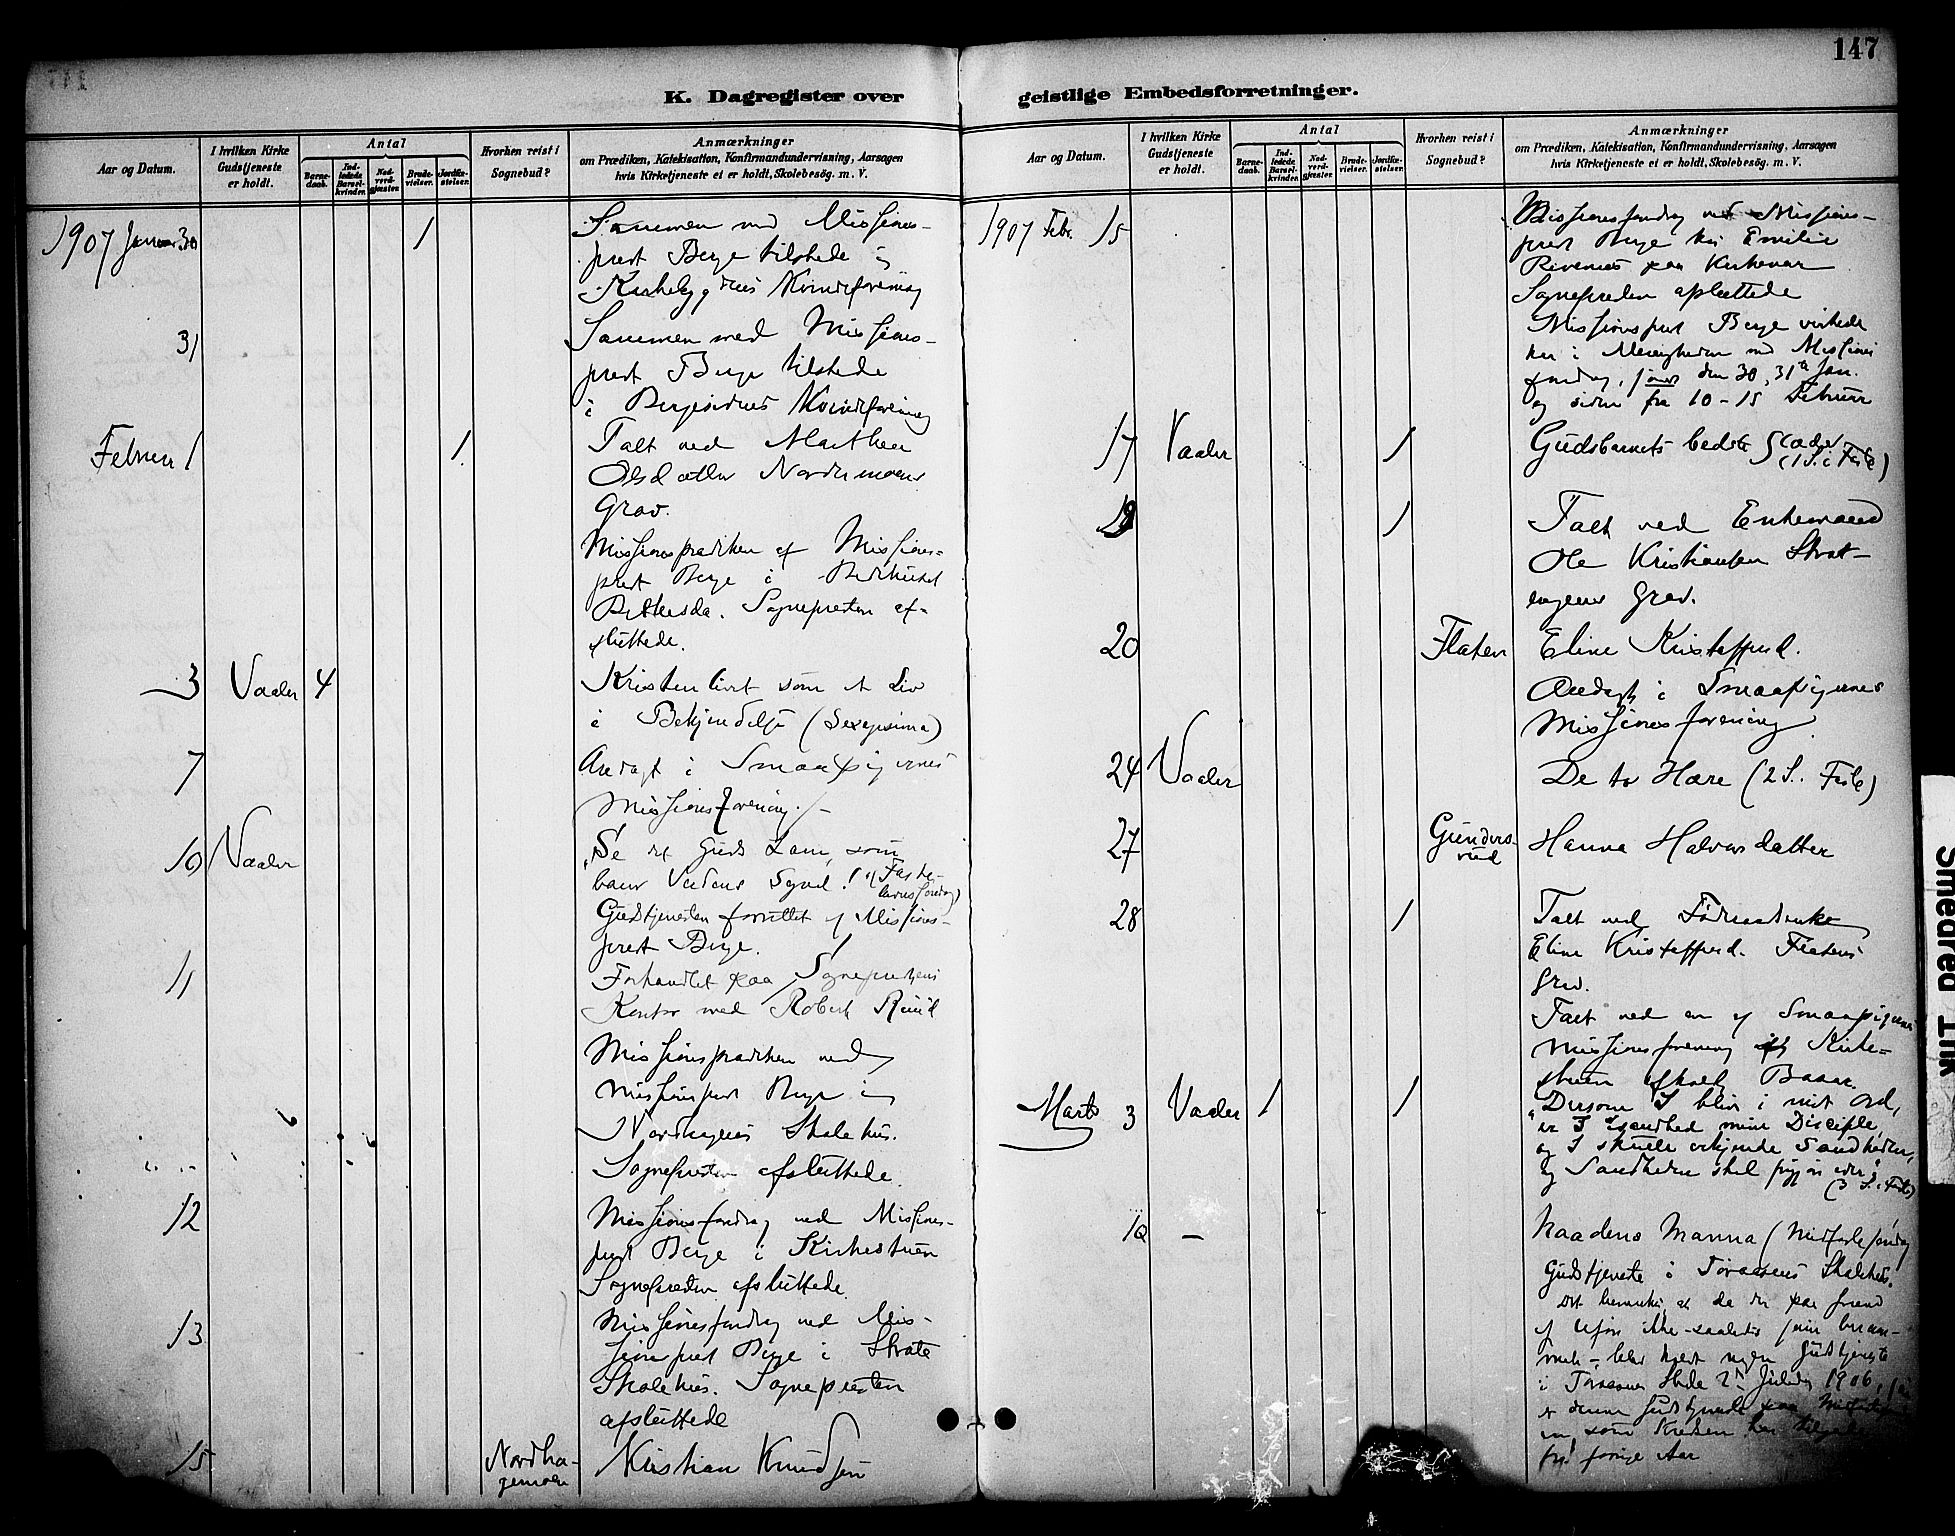 147
K. Dagregister over geistlige Embedsforretninger.
Aar og Datum.
I hvilken Kirke Gudstjeneste er holdt.
Antal
Barnedaab.
Indledede Barselkvinder.
Nadverdgjæster.
Brudevielser.
Jordfæstelser.
Hvorhen reist i Sognebud?
Anmærkninger
om Prædiken, Katekisation, Konfirmandundervisning, Aarsagen
hvis Kirketjeneste ei er holdt, Skolebesög. m. V.
1907 Januar 30 1 Sammen med Missions-
prest Berge tilstede i
Kirkebygdens Kvindeforening
31 Sammen med Missions-
prest Berge tilstede
i Kvindeforening
Februar 1 1 Talt ved Marthea
Olsdatter Nordremoens
Grav.
Missionsprædiken af Missions-
prest Berge i Bedehuset
Bethesda. Sognepresten af-
sluttede.
3 Vaaler 4 Kristenlivet som et Liv
i Bekjendelse (Sexagesima)
7 Andagt i Smaapigernes
Missionsforening.
10 Vaaler "Se det Guds Lam, som
bærer Verdens Synd!" (Faste-
lavnssöndag)
Gudstjenesten forrettet af Missions-
prest Berge.
11 Forhandlet paa Sogneprestens
Kontor med Robert Ruud
Missionsprædiken ved
Missionsprest Berge i
Nordhagens Skolehus.
Sognepresten afsluttede.
12 Missionsforedrag ved Missions-
prest Berge i Kirkestuen
Sognepresten afsluttede.
13 Missionsforedrag ved Mis-
sionsprest Berge i Strate
Skolehus. Sognepresten
afsluttede
15 Nordha-
gemoen Kristian Knudsen
Aar og Datum.
I hvilken Kirke Gudstjeneste er holdt.
Antal
Barnedaab.
Indledede Barselkvinder.
Nadverdgjæster.
Brudevielser.
Jordfæstelser.
Hvorhen reist i Sognebud?
Anmærkninger
om Prædiken, Katekisation, Konfirmandundervisning, Aarsagen
hvis Kirketjeneste ei er holdt, Skolebesög. m. V.
1907 Febr. 15 Missionsforedrag ved Missions-
prest Berge hos Emilie
paa
Sognepresten afsluttede
Missionsprest Berge virkede
her i Menigheden med Missions
foredrag, först den 30, 31te Jan.
og siden fra 10-15 Februar
17 Vaaler 1 Gudsbarnets bedste
(1 S. i Faste)
19 1 Talt ved Enkemand
Ole Kristiansen Strat-
engens Grav.
20 Flaten Eline Kristoffersd.
Andagt i Smaapigernes
Missionsforening
24 Vaaler De to Hære (2 S. i Faste)
27 Gunders-
rud Hanna Halvorsdatter
28 1 Talt ved
Eline Kristoffersd. Flatens
Grav.
Talt ved en af Smaapigernes
Missionsforening i Kirke-
stuen afholdt Basar.
Marts 3 Vaaler 1 1 "Dersom I bliver i mit Ord,
er I isandhed mine Disciple,
og I skulle erkjende Sandheden,
og Sandheden skal frigjøre eder"
(3 S. i Faste)
10 - Naadens Manna (Midfastesöndag
Gudstjeneste i Toraasens Skolehus.
Det bemerkes, at da der paa Grund
af ikke
Gudstjeneste
i Toraasens Skole 2den Juledag 1906,
er denne Gudstjeneste paa
som Kredsen har
fra forrige Aar
Smedred 1nk